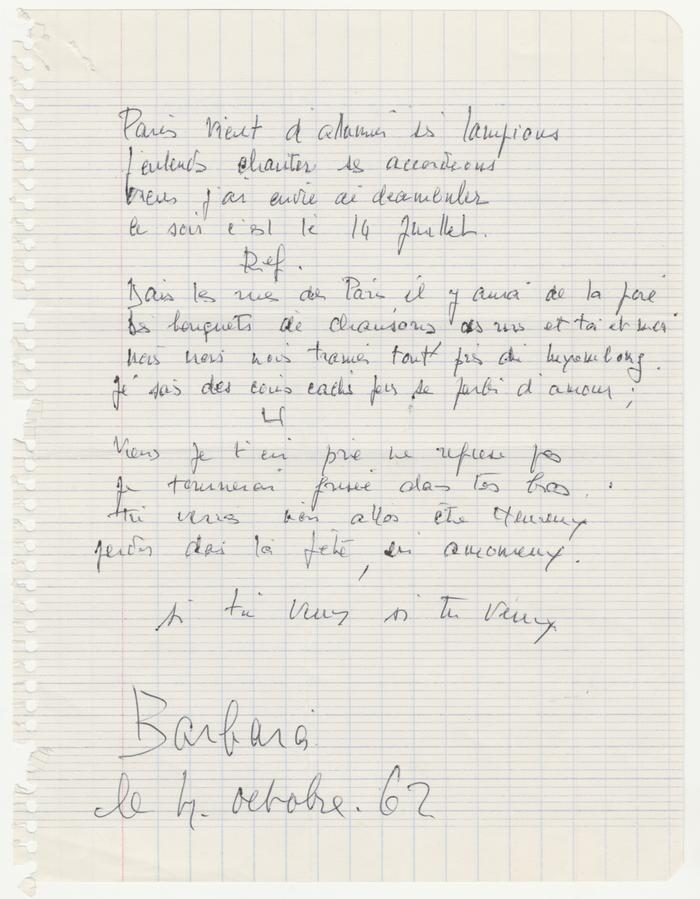 Paris vient d'alumer ses lampions
j'entends chanter ses accordéons
viens j'ai envie de deambuler
ce soir c'est le 14 Juillet.
Ref.
Dans les rues de Paris il y aura de la joie
Des bouquets de chansons des ris et toi et moi
nous irons nous tout près du
je sais des coins cachés pour se parler d'amour ;
Viens je t'en prie ne refuse pas
Je tournerai grisée dans tes bras.
tu verras nous allons être Heureux
perdus dans la fête, en amoureux.
si tu veux si tu veux
Barbara
le 4. octobre. 62